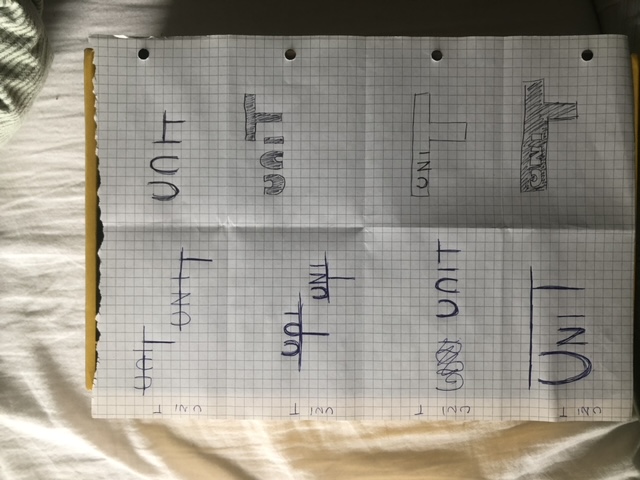 UNIT
UNIT
UNIT
UNIT
UNIT
UNIT
UNIT
UNIT
UNIT
UNIT
UNIT
UNIT
UNIT
UNIT